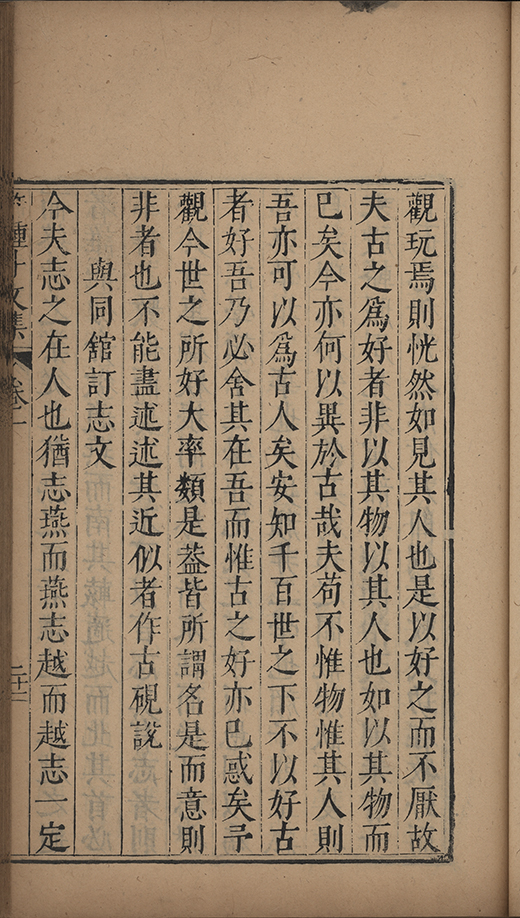 觀玩焉則恍然如見其人也是以好之而不厭故
夫古之爲好者非以其物以其人也如以其物而
已矣今亦何以異於古哉夫苟不惟物惟其人則
吾亦可以爲古人矣安知千百世之下不以好古
者好吾乃必舍其在吾而惟古之好亦已惑矣予
觀今世之所好大率類是葢皆所謂名是而意則
非者也不能盡述述其近似者作古硯說
與同舘訂志文
今夫志之在人也猶志燕而燕志越而越志一定
文集
卷
二十二